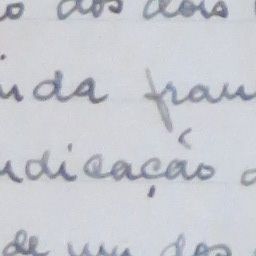 o dos dois
ida fran
dicação
de um dos